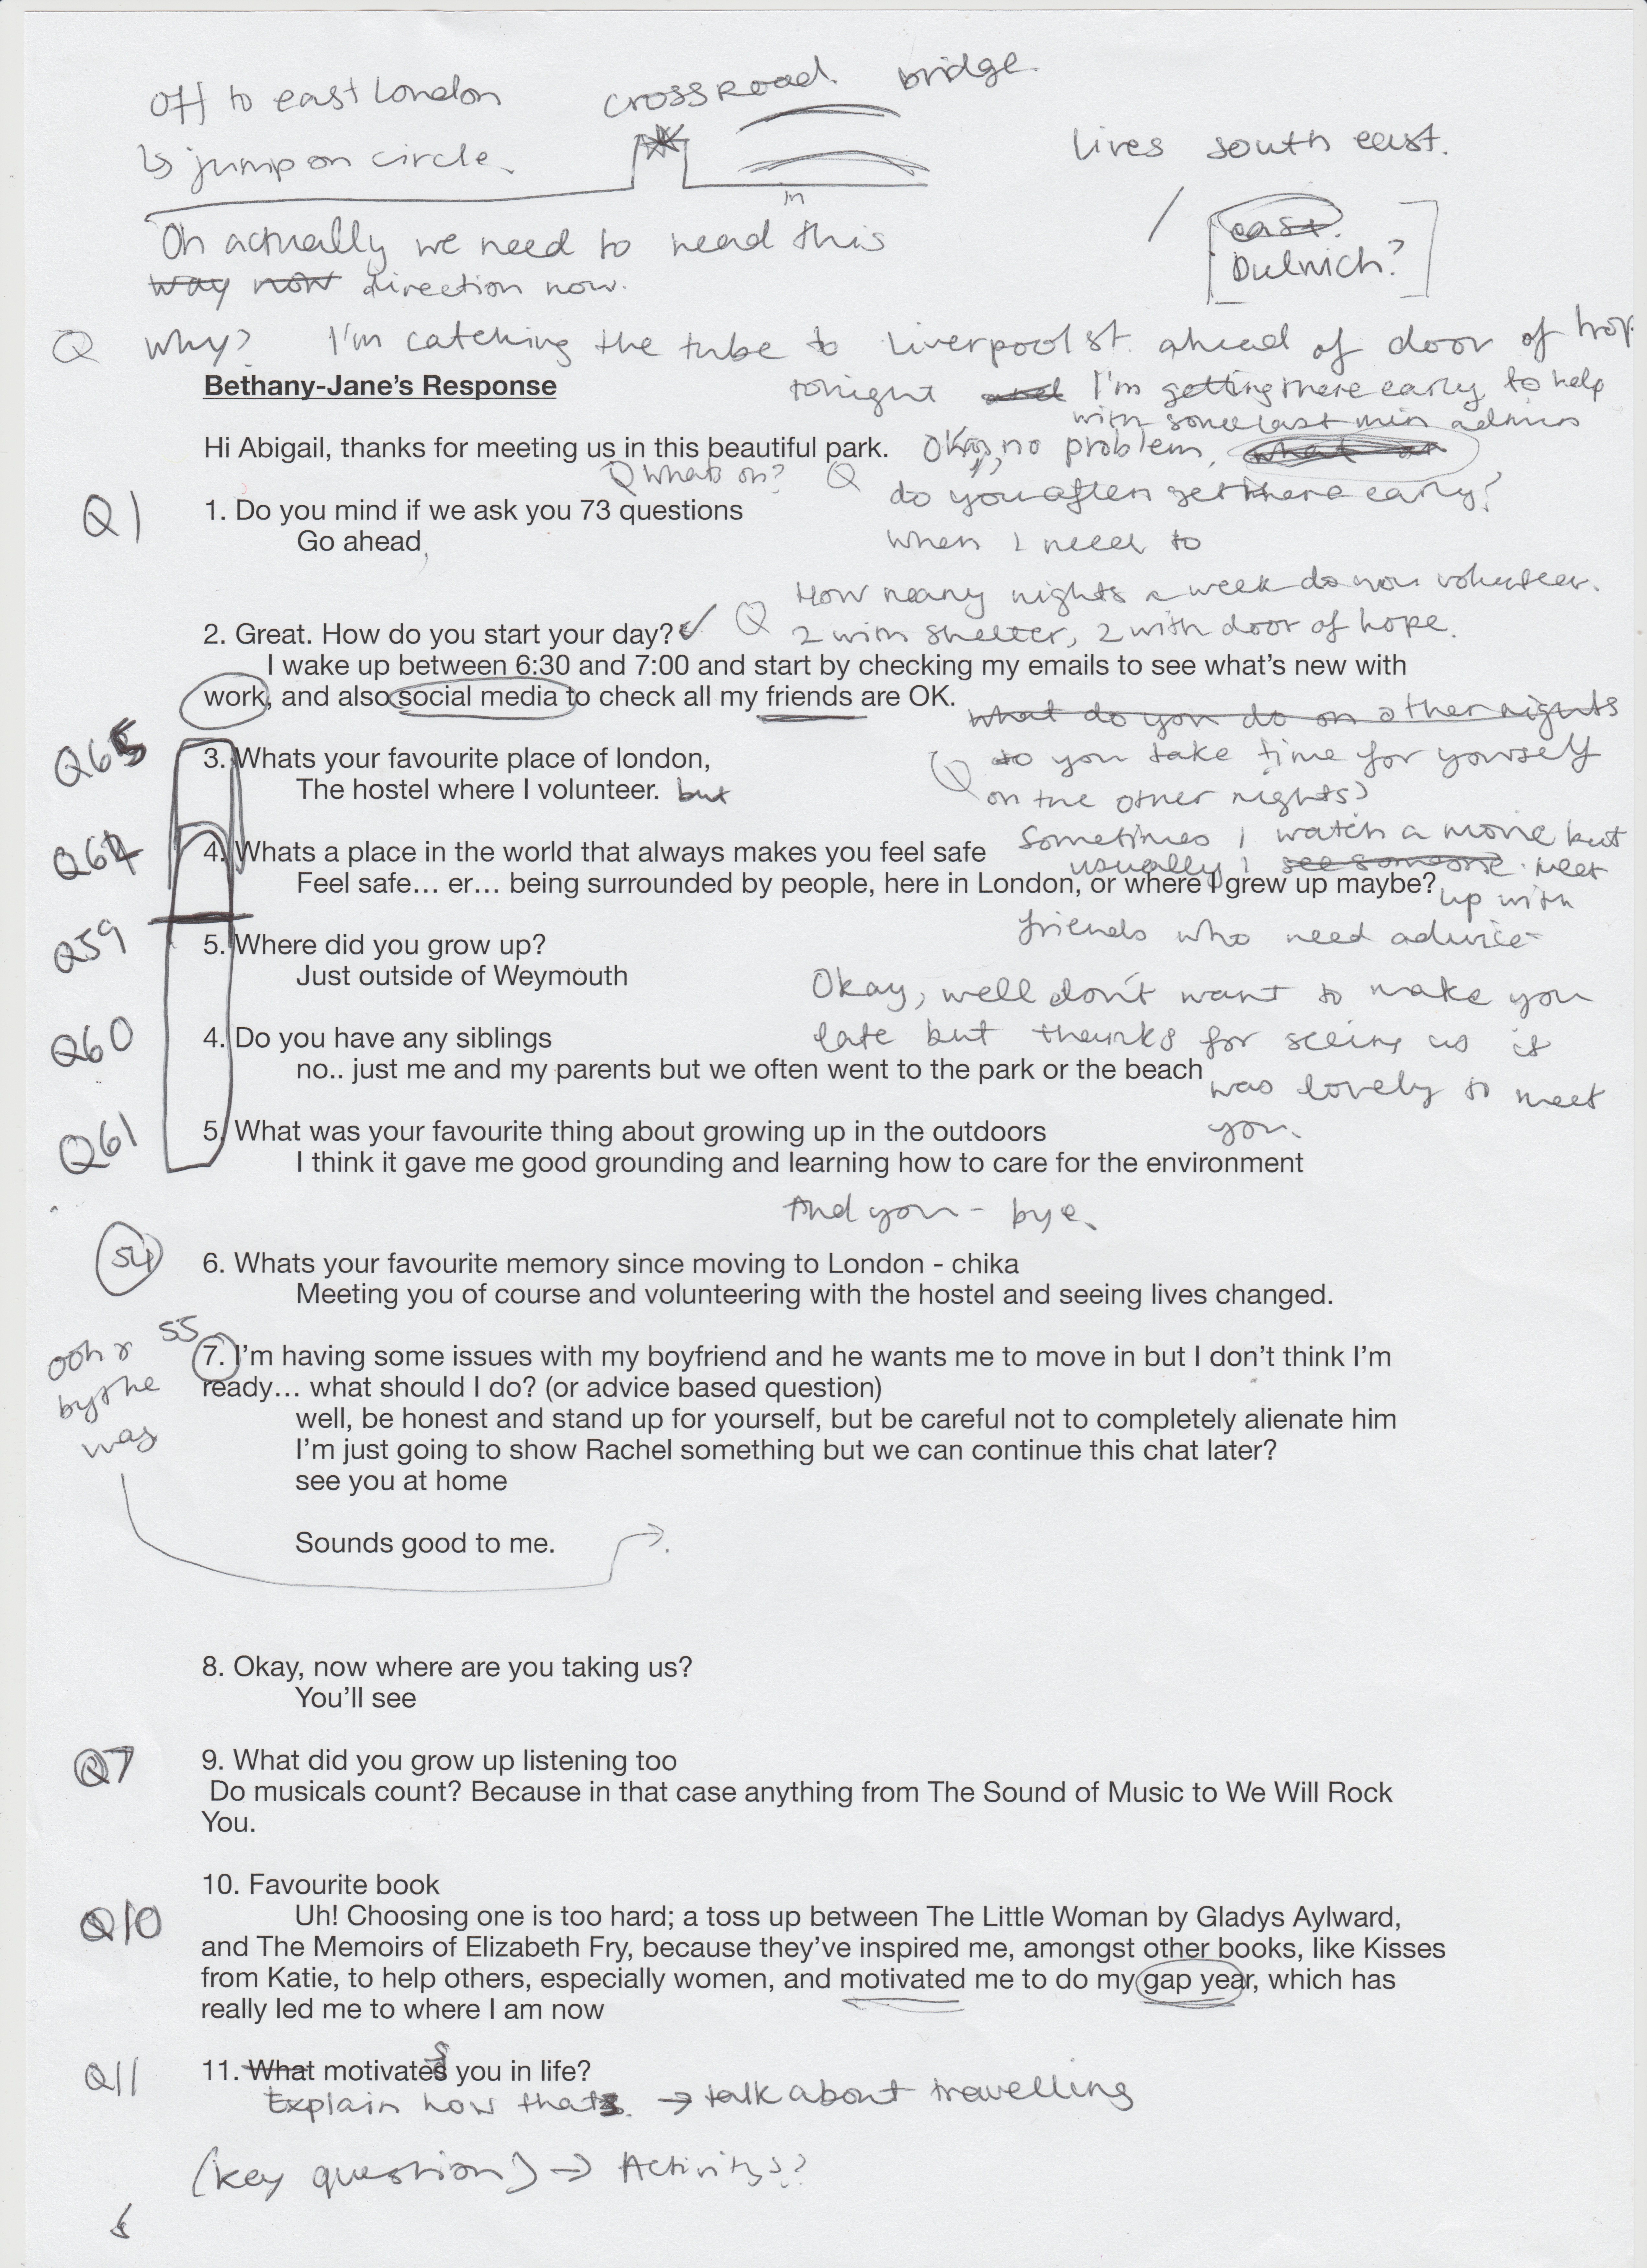 Off to east London
crossroad. bridge
↳ jump on circle.
lives south east.
Oh actually we need to head this in
way now direction now.
east.
Dulwich?
Q Why? I'm catching the tube to Liverpool st. ahead of door of hop
Bethany-Jane's Response
tonight and I'm getting there early to help
with some last min admin
Hi Abigail, thanks for meeting us in this beautiful park.
Okay, no problem,
Q Whats on? Q
do you often get there early?
Q1
1. Do you mind if we ask you 73 questions
Go ahead
when I need to
How many nights a week do you volunteer.
2. Great. How do you start your day? ✓ Q
2 with shelter, 2 with door of hope.
I wake up between 6:30 and 7:00 and start by checking my emails to see what's new with
work, and also social media to check all my friends are OK.
what do you do on other nights
Q65
3. Whats your favourite place of london,
Q do you take time for yourself
The hostel where I volunteer. but
on the other nights?
Sometimes I watch a movie but
Q64
4. Whats a place in the world that always makes you feel safe
usually I see someone. meet
Feel safe… er… being surrounded by people, here in London, or where I grew up maybe?
up with
friends who need advice
Q59
5. Where did you grow up?
Just outside of Weymouth
Okay, well don't want to make you
Q60
4. Do you have any siblings
late but thanks for seeing us it
no.. just me and my parents but we often went to the park or the beach
was lovely to meet
Q61
5. What was your favourite thing about growing up in the outdoors
you.
I think it gave me good grounding and learning how to care for the environment
And you - bye.
54
6. Whats your favourite memory since moving to London - chika
Meeting you of course and volunteering with the hostel and seeing lives changed.
55
7. I'm having some issues with my boyfriend and he wants me to move in but I don't think I'm
ready… what should I do? (or advice based question)
ooh &
by the
way
well, be honest and stand up for yourself, but be careful not to completely alienate him
I'm just going to show Rachel something but we can continue this chat later?
see you at home
Sounds good to me.
8. Okay, now where are you taking us?
You'll see
Q7
9. What did you grow up listening too
Do musicals count? Because in that case anything from The Sound of Music to We Will Rock
You.
10. Favourite book
Q10
Uh! Choosing one is too hard; a toss up between The Little Woman by Gladys Aylward,
and The Memoirs of Elizabeth Fry, because they've inspired me, amongst other books, like Kisses
from Katie, to help others, especially women, and motivated me to do my gap year, which has
really led me to where I am now
Q11
11. What motivates you in life?
Explain how thats. → talk about travelling
(key question) → Activitys?